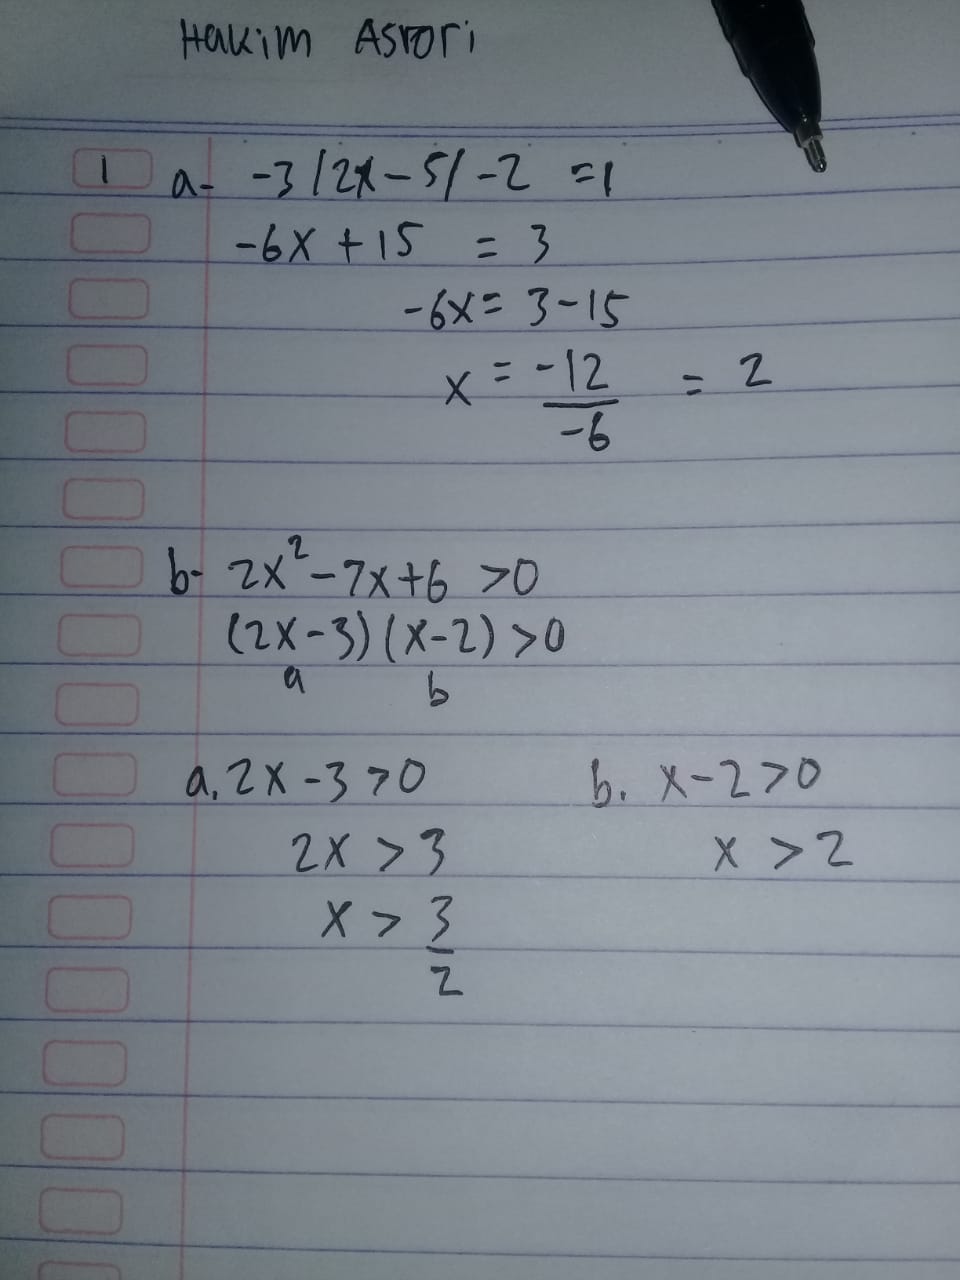 Hakim Asrori
1 a- -3|2x-5|-2 =1
-6x+15 = 3
-6x= 3-15
x = -12/-6 = 2
b- 2x²-7x+6 >0
(2x-3)(x-2)>0
a b
a. 2x-3>0 b. x-2>0
2x >3 x >2
x > 3/2